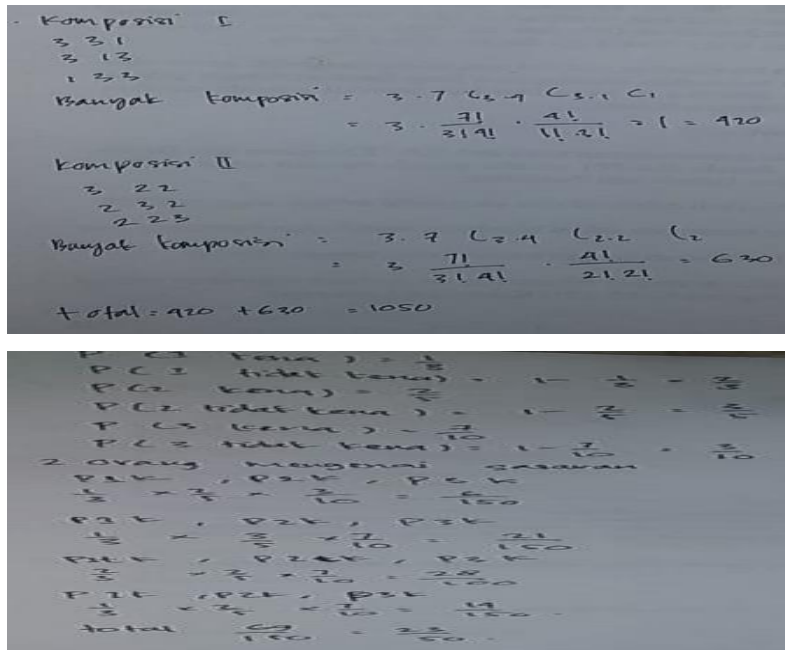 Komposisi I
3 3 1
3 1 3
1 3 3
Banyak komposisi = 3 . 7 C3 . 4 C3 . 1 C1
= 3 . 7!/3!4! . 4!/1!.3! = 1 = 420
Komposisi II
3 2 2
2 3 2
2 2 3
Banyak komposisi = 3 . 7 C3 . 4 C2 . 2 C2
= 3 7!/3!4! . 4!/2!2! = 630
total = 420 + 630 = 1050
kena ) = 1/3
tidak kena) = 1 - 1/3 = 2/3
P(2 kena) = 2/5
P(2 tidak kena) = 1 - 2/5 = 3/5
P (3 kena) = 7/10
P (3 tidak kena) = 1 - 7/10 = 3/10
2 orang mengenai sasaran
P1K , P2K , P3 K
1/3 × 2/5 × 3/10 = 6/150
, P2K , P3K
1/3 × 3/5 × 7/10 = 21/150
, P3 K
2/3 × 2/5 × 7/10 = 28/150
, P2K , P3K
1/3 × 2/5 × 7/10 = 14/150
total 69/150 = 23/50